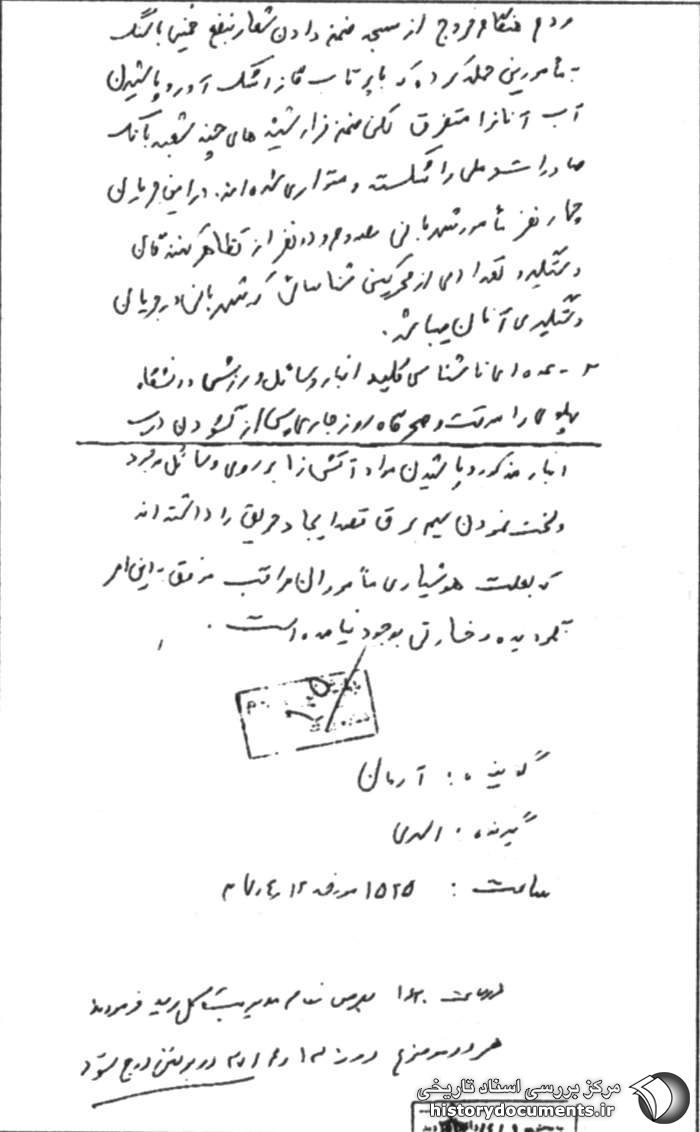 مردم هنگام خروج از مسجد ضمن دادن شعار بنفع خمینی با سنگ
به مأمورین حمله کرده که با پرتاب گاز اشک آور و پاشیدن
آب آنانرا متفرق لکن ضمن فرار شیشه های چند شعبه بانک
صادرات و ملی را شکسته و متواری شده اند. در این جریان
چهار نفر مأمور شهربانی مصدوم و دو نفر از تظاهر کنندگان
دستگیر و تعدادی از محرکین شناسائی که شهربانی در جریان
دستگیری آنان میباشد.
۲ - عده ای ناشناس کلید انبار وسائل ورزشی دانشگاه
پهلوی را سرقت و صبحگاه روز جاری پس از گشودن درب
انبار مذکور و پاشیدن مواد آتش زا بر روی وسائل موجود
و لخت نمودن سیم برق قصد ایجاد حریق را داشته اند
که بعلت هوشیاری مأموران مراقب موفق باین امر
نگردیده و خسارتی بوجود نیامده است.
گوینده : آرمان
گیرنده : اسدی
ساعت : ۱۵۲۵ مورخه
بعرض مقام مدیریت کل رسید فرمودند
هر دو موضوع در بولتن درج شود
مرکز بررسی اسناد تاریخی
historydocuments.ir